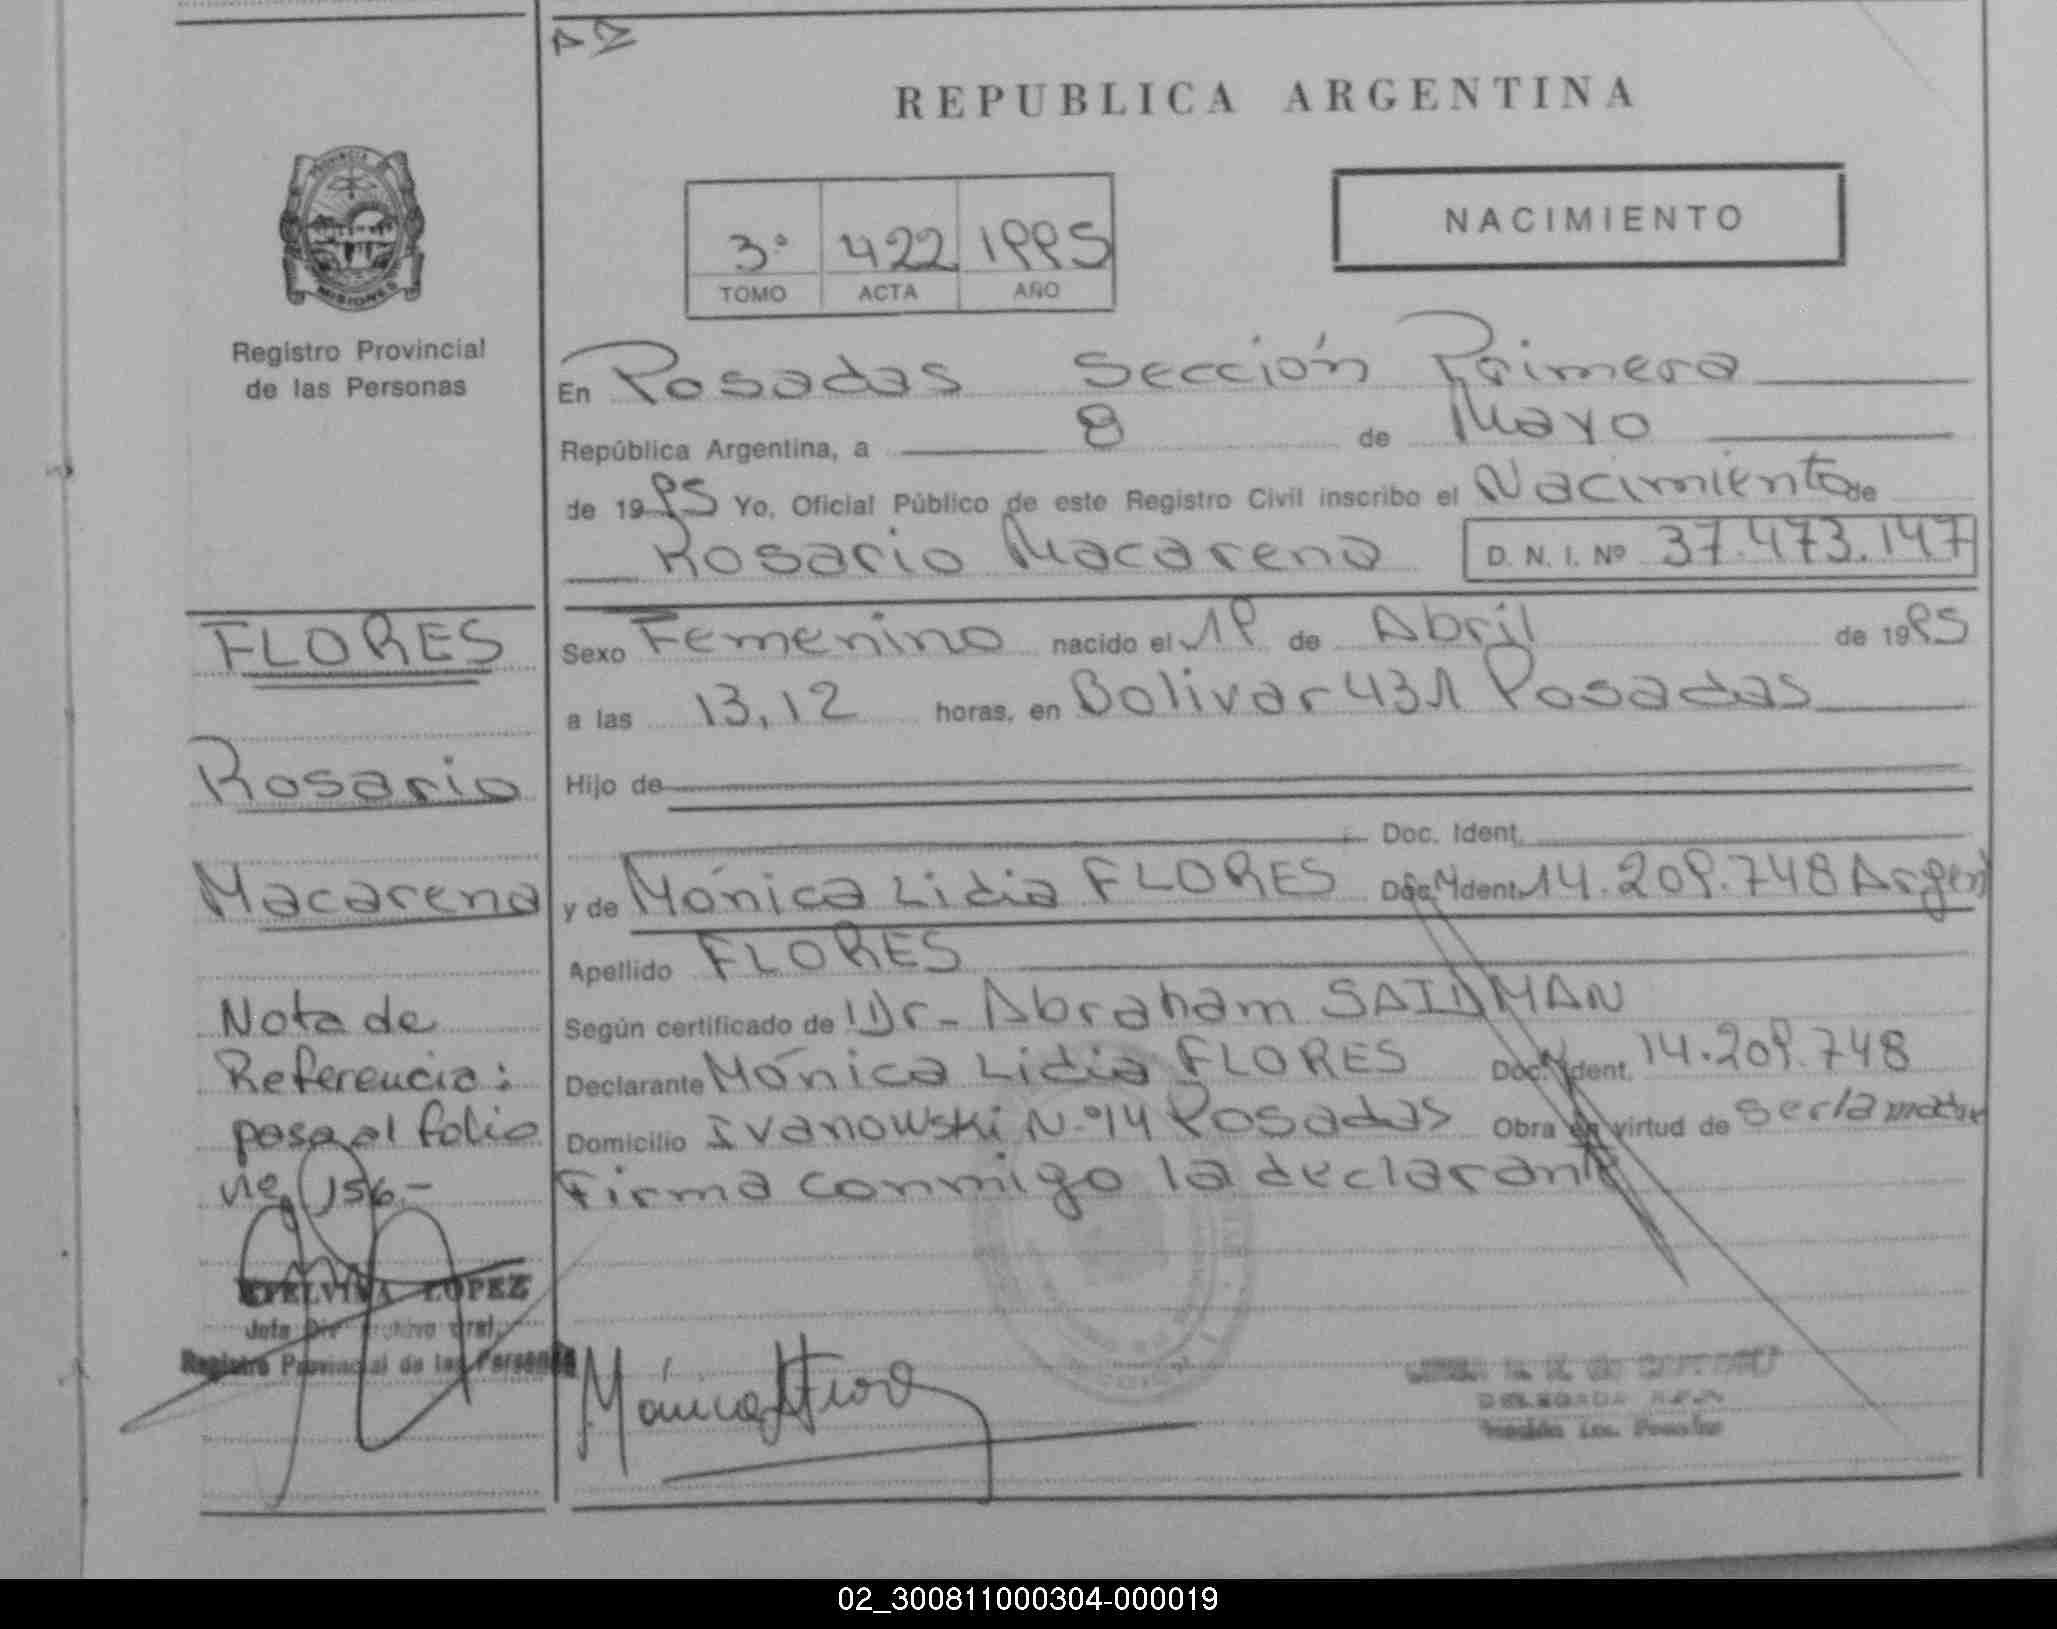 REPUBLICA ARGENTINA
PROVINCIA
MISIONES
Registro Provincial
de las Personas
3º 422 1995
TOMO ACTA AÑO
NACIMIENTO
En Posadas Sección Primera
República Argentina, a 8 de Mayo
de 1995 Yo, Oficial Público de este Registro Civil inscribo el Nacimiento de
Rosario Macarena D. N. I. Nº 37.473.147
Sexo Femenino nacido el 19 de Abril de 1995
a las 13,12 horas, en Bolivar 431 Posadas
Hijo de
Doc. Ident.
y de Mónica Lidia FLORES Doc. Ident. 14.209.748 Argen
Apellido FLORES
Según certificado de Dr. Abraham SAIDMAN
Declarante Mónica Lidia FLORES Doc. Ident. 14.209.748
Domicilio Ivanowski N.º 14 Posadas Obra en virtud de ser la madre
Firma conmigo la declarante
FLORES
Rosario
Macarena
Nota de
Referencia:
pasa al folio
nº 156.-
LOPEZ
Jefa Div Archivo Gral.
Registro Provincial de las Personas
02_300811000304-000019